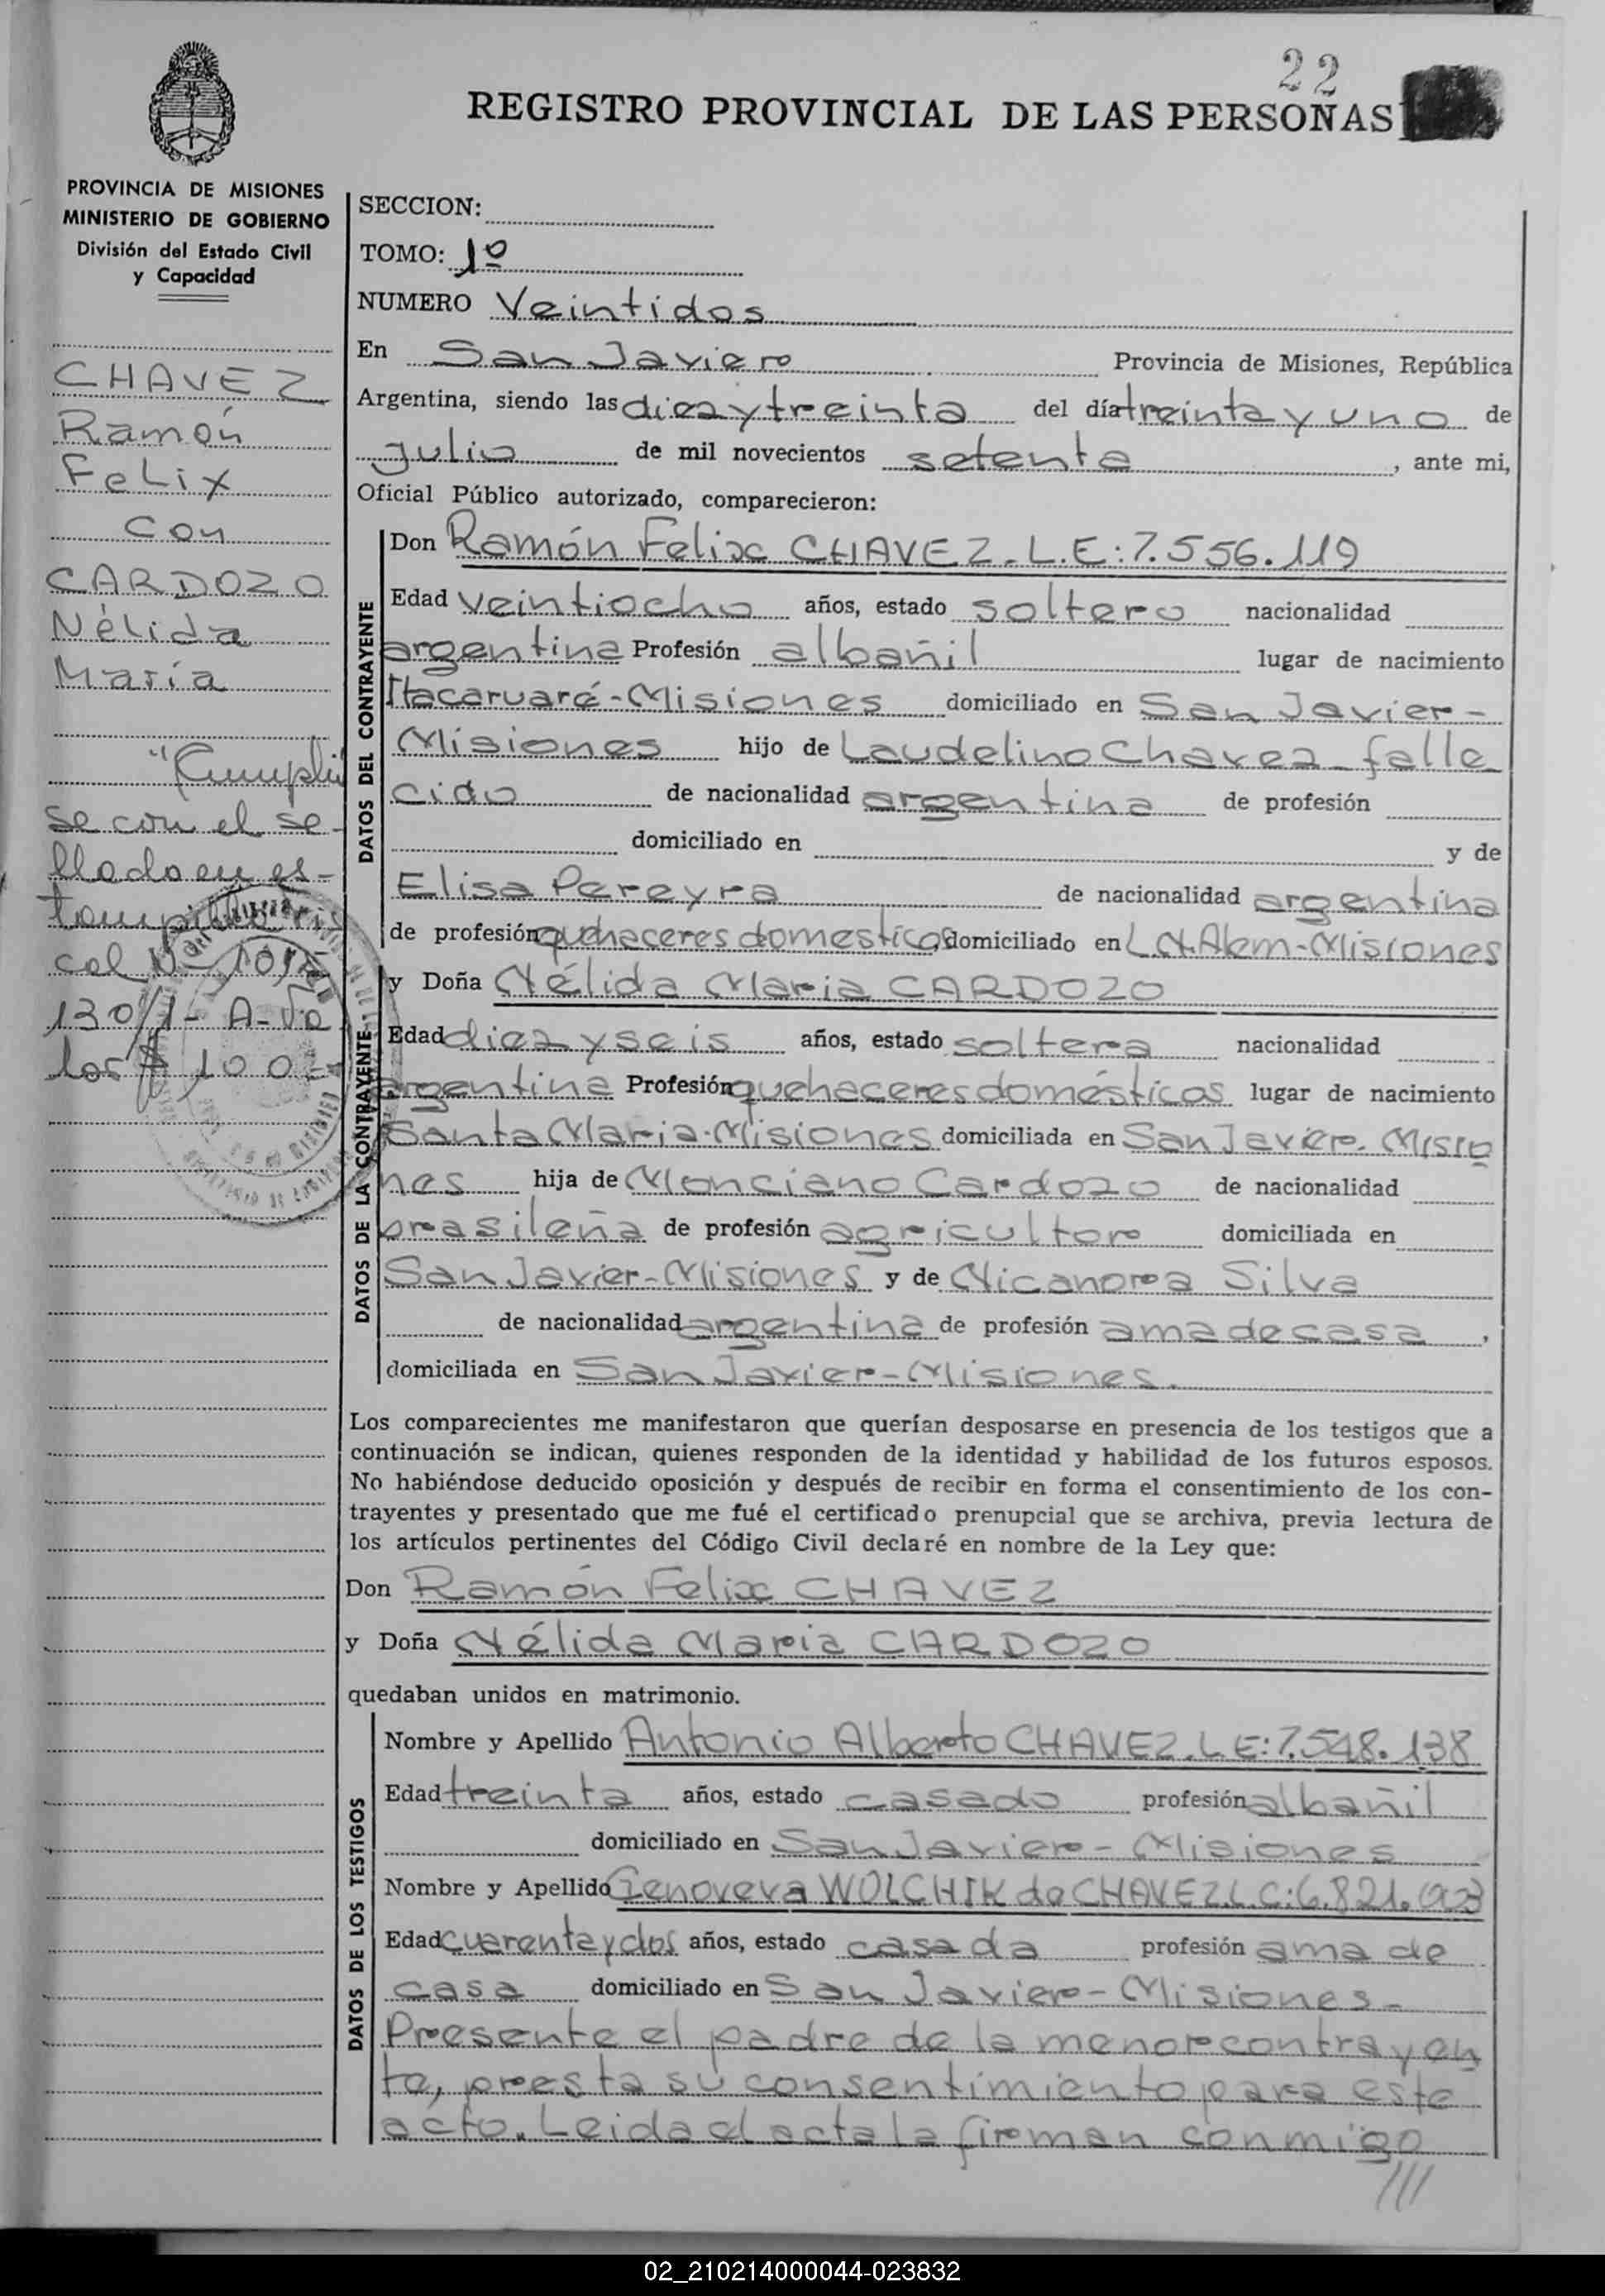 22
REGISTRO PROVINCIAL DE LAS PERSONAS
PROVINCIA DE MISIONES
MINISTERIO DE GOBIERNO
División del Estado Civil
y Capacidad
CHAVEZ
Ramón
Felix
con
CARDOZO
Nélida
María
"Cumplió
se con el se-
llado en es-
tampilla fis
cal Nº
130/1- A-Va
lor $ 100.-
SECCION:
TOMO: 1º
NUMERO Veintidos
En San Javier Provincia de Misiones, República
Argentina, siendo las diez y treinta del día treinta y uno de
julio de mil novecientos setenta, ante mi,
Oficial Público autorizado, comparecieron:
DATOS DEL CONTRAYENTE
Don Ramón Felix CHAVEZ. L.E: 7.556.119
Edad veintiocho años, estado soltero nacionalidad
argentina Profesión albañil lugar de nacimiento
Itacaruaré-Misiones domiciliado en San Javier-
Misiones hijo de Laudelino Chavez-falle
cido de nacionalidad argentina de profesión
domiciliado en y de
Elisa Pereyra de nacionalidad argentina
de profesión quehaceres domesticos, domiciliado en L.N.Alem-Misiones
DATOS DE LA CONTRAYENTE
y Doña Nélida Maria CARDOZO
Edad diez y seis años, estado soltera nacionalidad
argentina Profesión quehaceres domésticos lugar de nacimiento
Santa Maria-Misiones domiciliada en San Javier-Misio
nes hija de Monciano Cardozo de nacionalidad
brasileña de profesión agricultor domiciliada en
San Javier-Misiones y de Nicanora Silva
de nacionalidad argentina de profesión ama de casa,
domiciliada en San Javier-Misiones.
Los comparecientes me manifestaron que querían desposarse en presencia de los testigos que a
continuación se indican, quienes responden de la identidad y habilidad de los futuros esposos.
No habiéndose deducido oposición y después de recibir en forma el consentimiento de los con-
trayentes y presentado que me fué el certificado prenupcial que se archiva, previa lectura de
los artículos pertinentes del Código Civil declaré en nombre de la Ley que:
Don Ramón Felix CHAVEZ
y Doña Nélida Maria CARDOZO
quedaban unidos en matrimonio.
DATOS DE LOS TESTIGOS
Nombre y Apellido Antonio Alberto CHAVEZ. L E: 7.548.138
Edad treinta años, estado casado profesión albañil
domiciliado en San Javier-Misiones
Nombre y Apellido Genoveva WOLCHIK de CHAVEZ. L.C: 6.821.
Edad cuarenta y dos años, estado casada profesión ama de
casa domiciliado en San Javier-Misiones-
Presente el padre de la menor contrayen
te, presta su consentimiento para este
acto. Leida el acta la firman conmigo
///
02_210214000044-023832